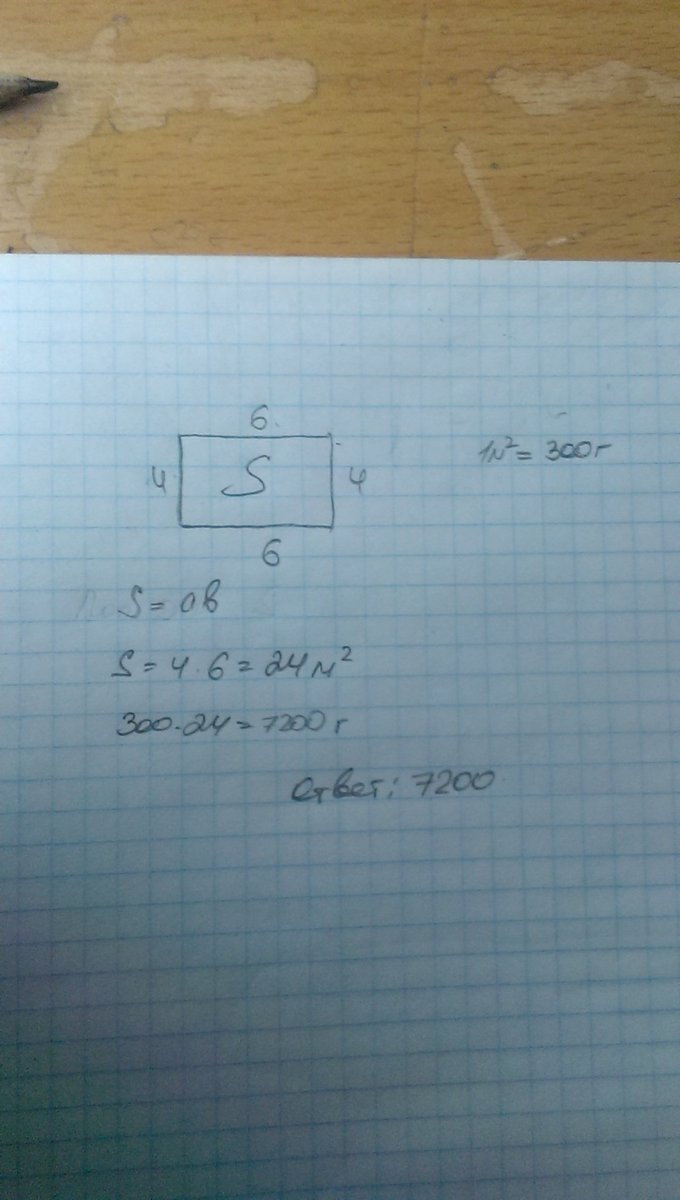 6
4 S 4
1м² = 300г
6
S = ab
S = 4 · 6 = 24 м²
300 · 24 = 7200 г
Ответ: 7200